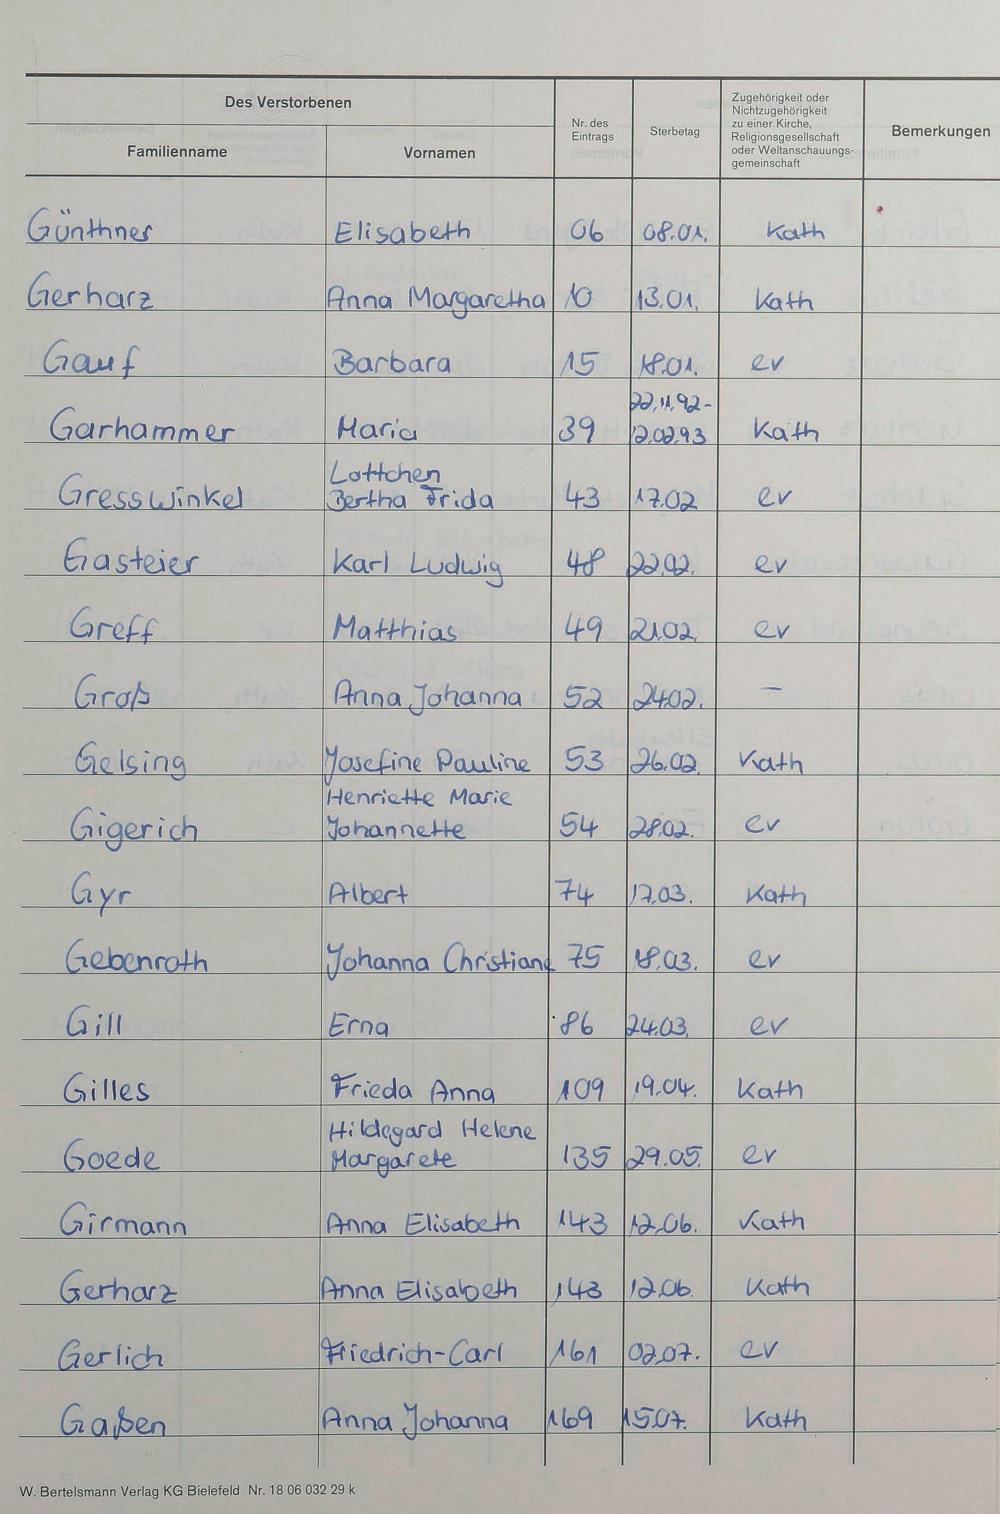 Des Verstorbenen
Familienname
Vornamen
Nr. des
Eintrags
Sterbetag
Zugehörigkeit oder
Nichtzugehörigkeit
zu einer Kirche,
Religionsgesellschaft
oder Weltanschauungs-
gemeinschaft
Bemerkungen
Günthner Elisabeth 06 08.01. Kath
Gerharz Anna Margaretha 10 13.01. Kath
Gauf Barbara 15 18.01. ev
22.11.92-
Garhammer Maria 39 12.02.93 Kath
Lottchen
Gresswinkel Bertha Frida 43 17.02 ev
Gasteier Karl Ludwig 48 22.02. ev
Greff Matthias 49 21.02. ev
Groß Anna Johanna 52 24.02. –
Gelsing Josefine Pauline 53 26.02. Kath
Henriette Marie
Gigerich Johannette 54 28.02. ev
Gyr Albert 74 17.03. Kath
Gebenroth Johanna Christiane 75 18.03. ev
Gill Erna 86 24.03. ev
Gilles Frieda Anna 109 19.04. Kath
Hildegard Helene
Goede Margarete 135 29.05. ev
Girmann Anna Elisabeth 143 12.06. Kath
Gerharz Anna Elisabeth 143 12.06. Kath
Gerlich Friedrich-Carl 161 02.07. ev
Gaßen Anna Johanna 169 15.07. Kath
W. Bertelsmann Verlag KG Bielefeld Nr. 18 06 032 29 k